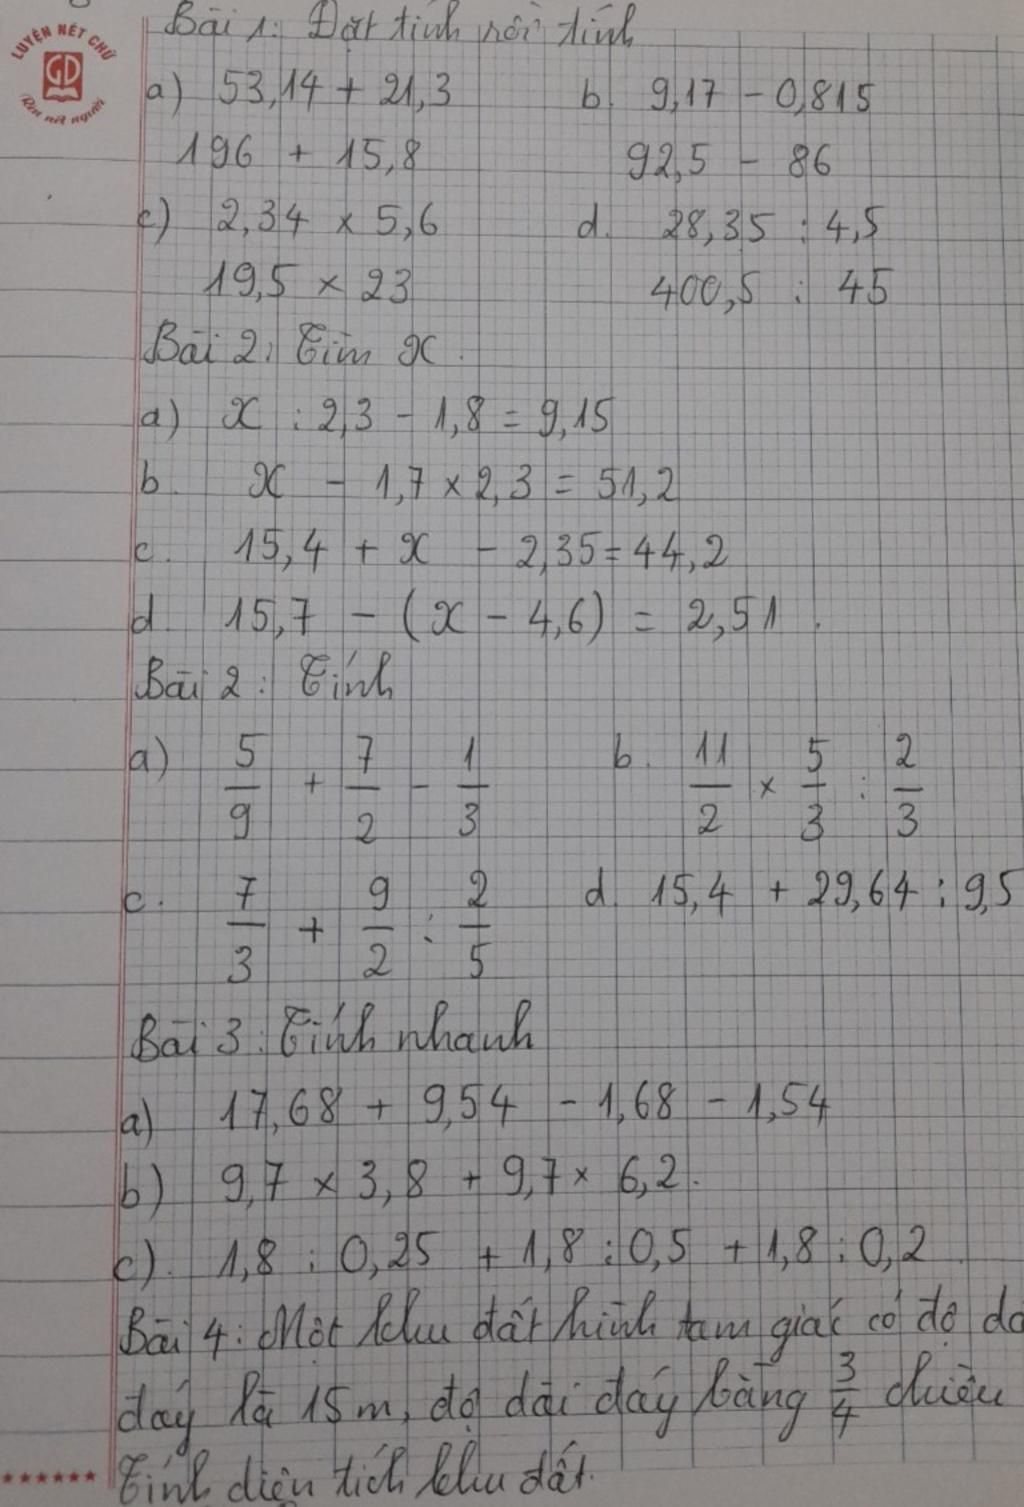 LUYỆN NÉT CHỮ
GD
Rèn nết người
Bài 1: Đặt tính rồi tính
a) 53,14 + 21,3 b. 9,17 - 0,815
196 + 15,8 92,5 - 86
c) 2,34 × 5,6 d. 28,35 : 4,5
19,5 × 23 400,5 : 45
Bài 2: Tìm x.
a) x : 2,3 - 1,8 = 9,15
b. x - 1,7 × 2,3 = 51,2
c. 15,4 + x - 2,35 = 44,2
d. 15,7 - (x - 4,6) = 2,51.
Bài 2: Tính
a) 5/9 + 7/2 - 1/3 b. 11/2 × 5/3 : 2/3
c. 7/3 + 9/2 : 2/5 d. 15,4 + 29,64 : 9,5
Bài 3: Tính nhanh
a) 17,68 + 9,54 - 1,68 - 1,54
b) 9,7 × 3,8 + 9,7 × 6,2.
c). 1,8 : 0,25 + 1,8 : 0,5 + 1,8 : 0,2
Bài 4: Một khu đất hình tam giác có độ
đáy là 15m, độ dài đáy bằng 3/4 chiều
Tính diện tích khu đất.